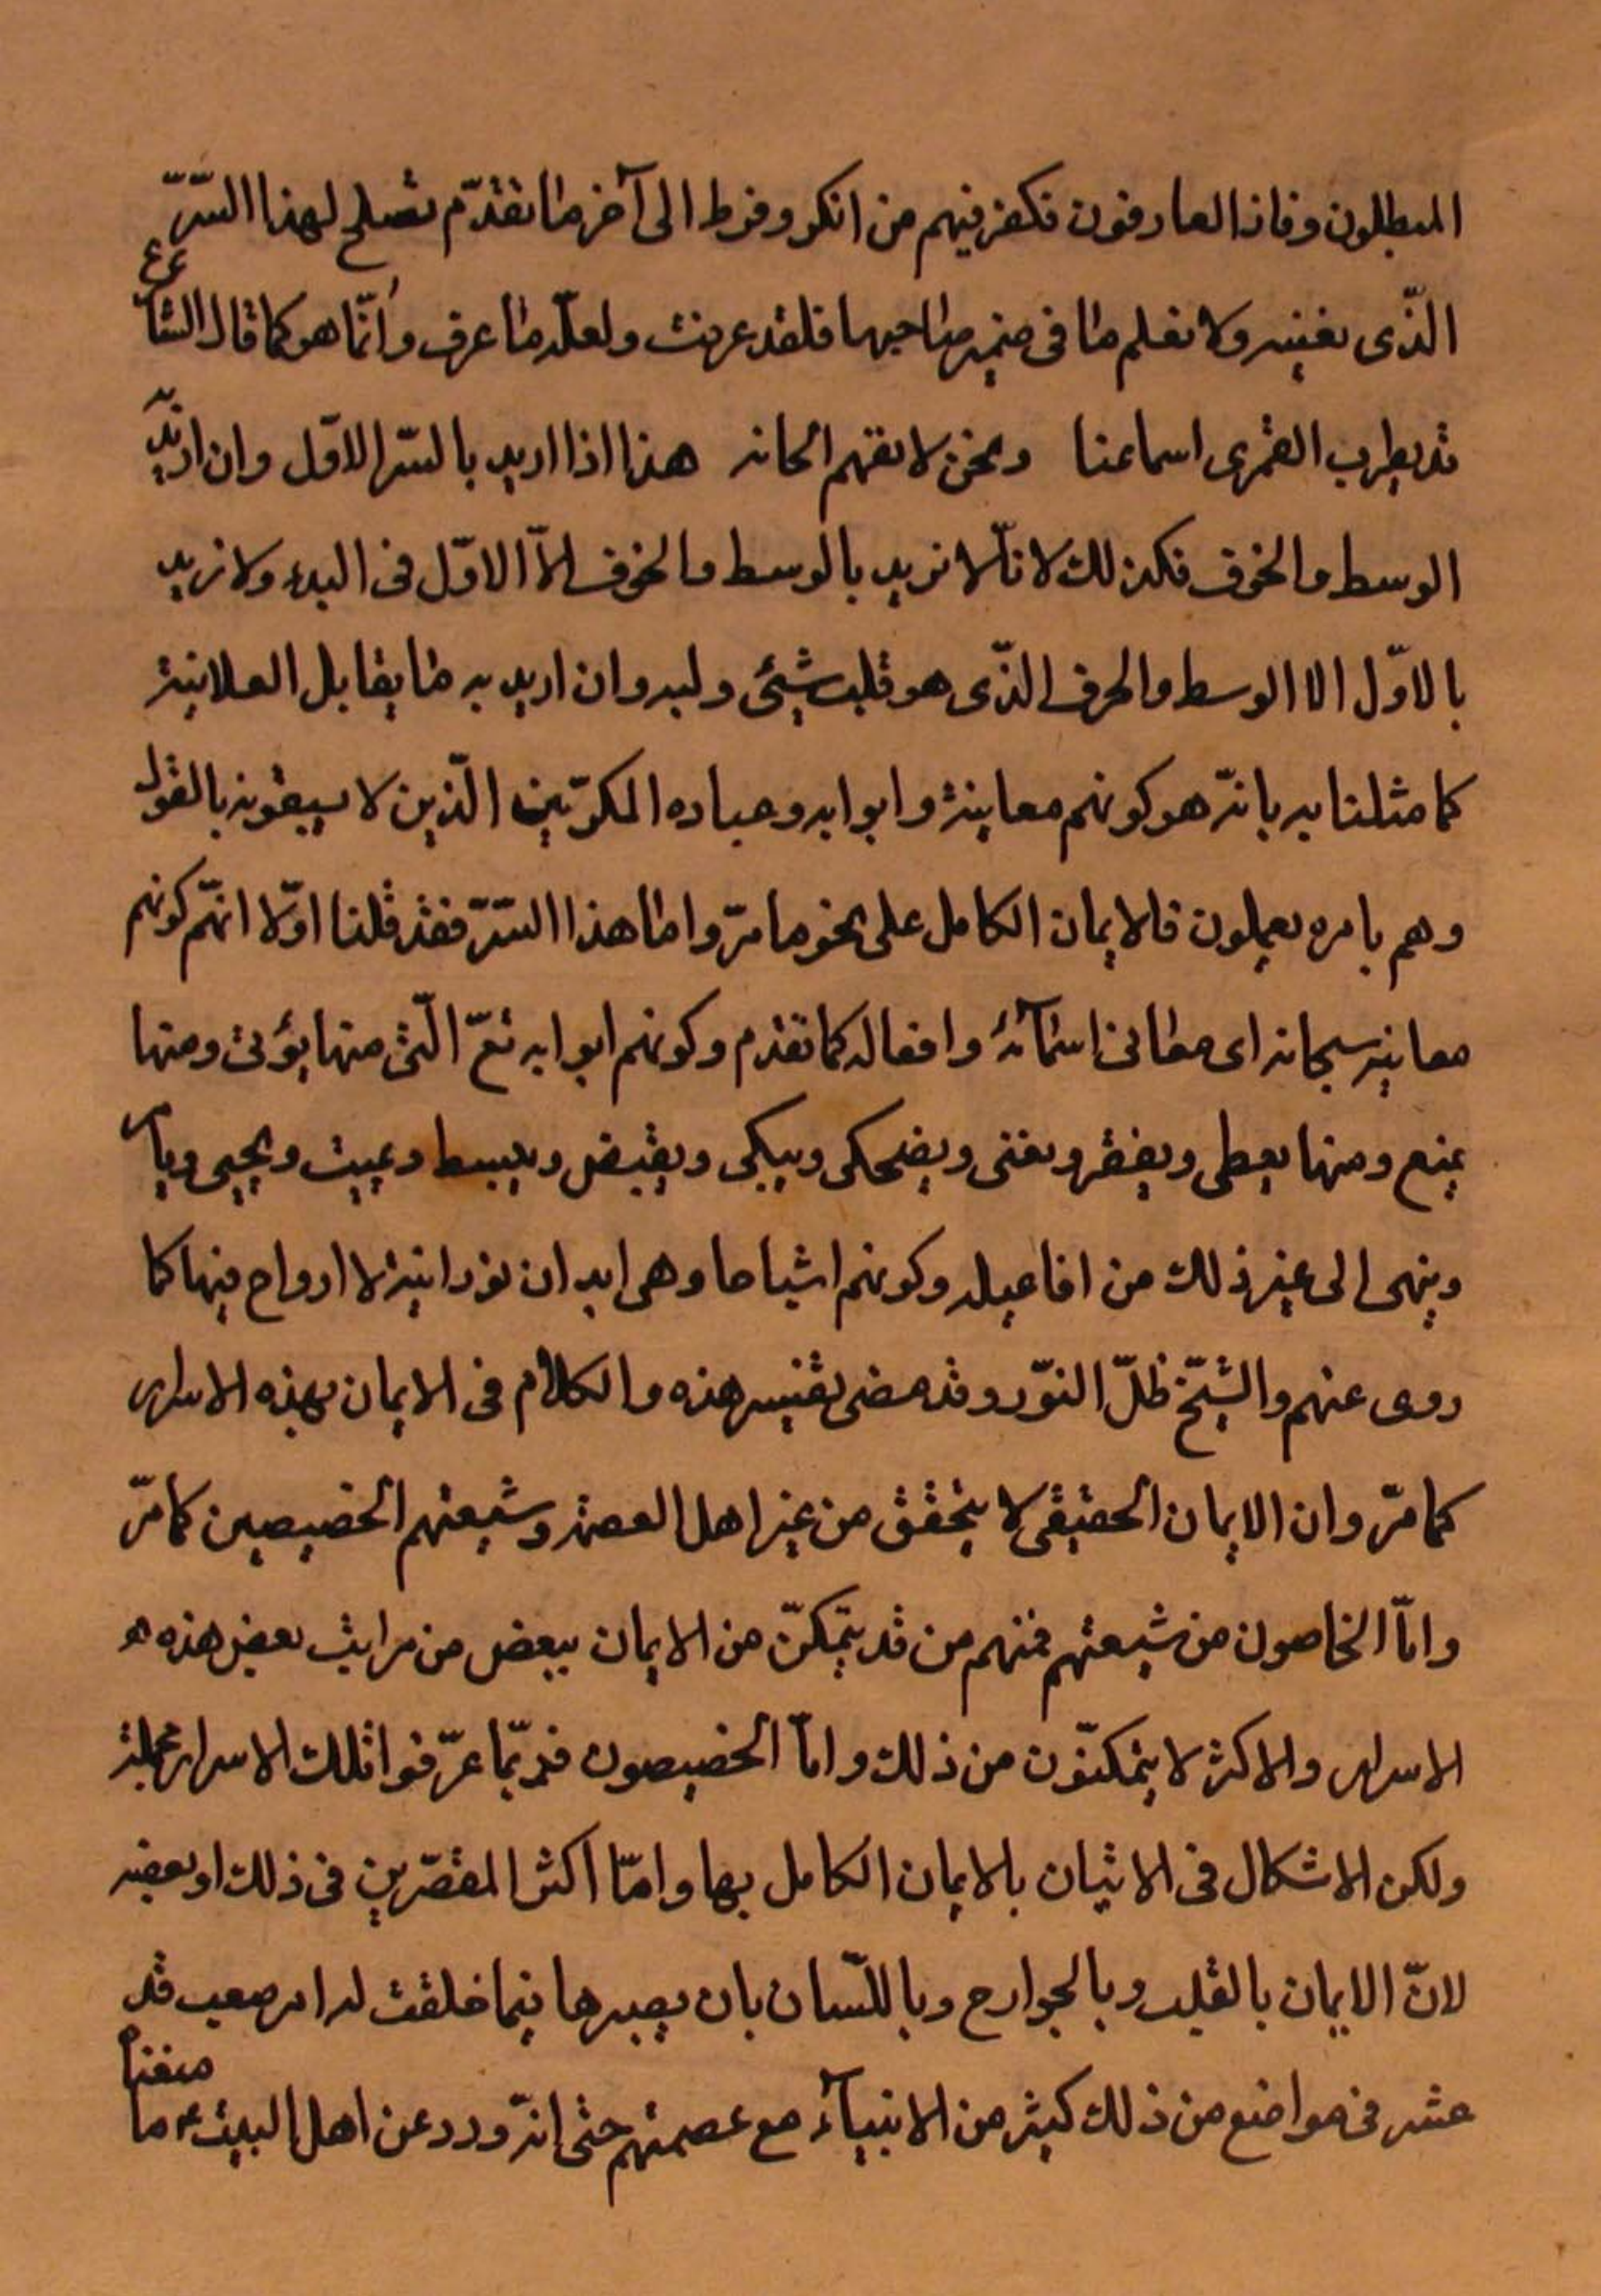 المبطلون وفاز العارفون فكفر فيهم من انكر وفرط الى آخر ما تقدّم تصلح لهذا السّرّ
الّذى نفسر ولا نعلم ما فى ضمير صاحبها فلقد عرفت ولعلّه ما عرف وانّما هو كما قال الشاعر
قد يطرب القمرى اسماعنا ونحن لا نفهم الحانه هذا اذا اريد بالسّر الاوّل وان اريد به
الوسط والخوف فكذلك لانّا لا نريد بالوسط والخوف الاّ الاوّل فى البدء ولا نريد
بالاوّل الا الوسط والحرف الّذى هو قلب شيئى ولبه وان اريد به ما يقابل العلانية
كما مثلنا به بانّه هو كونهم معانيه وابوابه وعباده المكرّمين الّذين لا يسبقونه بالقول
وهم بامره يعملون فالايمان الكامل على نحو ما مرّ واما هذا السّرّ فقد قلنا اوّلا انهّم كونهم
معانيه سبحانه اى معانى اسمآئه وافعاله كما تقدم وكونهم ابوابه تعّ الّتى منها يؤتى ومنها
يمنع ومنها يعطى ويفقر ويغنى ويضحك ويبكى ويقبض ويبسط ويميت ويحيى ويأمر
وينهى الى غير ذلك من افاعيله وكونهم اشباحا وهى ابدان نورانية لا ارواح فيها كما
روى عنهم والشّبح ظلّ النّور وقد مضى تفسير هذه والكلام فى الايمان بهذه الاسرار
كما مرّ وان الايمان الحقيقى لا يتحقق من غير اهل العصمة وشيعتهم الخصيصين كما مرّ
وامّا الخاصون من شيعتهم فمنهم من قد يتمكّن من الايمان ببعض من مراتب بعض هذه
الاسرار والاكثر لا يتمكنّون من ذلك وامّا الخصيصون فربّما عرّفوا تلك الاسرار مجملة
ولكن الاشكال فى الاتيان بالايمان الكامل بها وامّا اكثر المقصّرين فى ذلك او بعضه
لانّ الايمان بالقلب وبالجوارح وباللّسان بان يصبرها فيما خلقت له امر صعب قد
عثر فى مواضع من ذلك كثير من الانبيآء مع عصمتهم حتى انّه ورد عن اهل البيت ع ما معناه